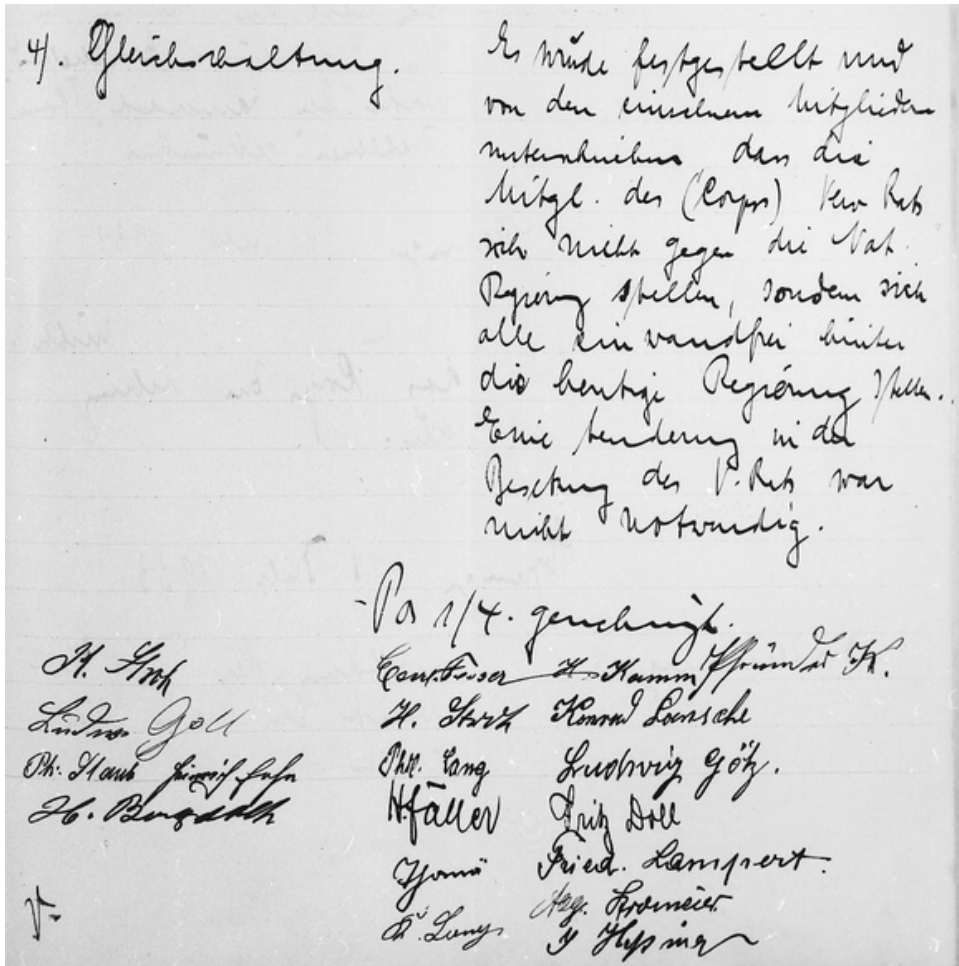 4). Gleichschaltung.
Es wurde festgestellt und
von den einzelnen Mitgliedern
unterschrieben dass die
Mitgl. des (Corps) Verw Rats
sich nicht gegen die Nat.
Regierung stellen, sondern sich
alle einwandfrei hinter
die heutige Regierung stellen.
Eine Aenderung in der
Besetzung des V. Rats war
nicht notwendig.
1/4. genehmigt.
H. Kamm Pfründer K.
Ludw. Goll H. Stroh Konrad
Ph. Staub Heinrich Phil. Lang Ludwig Götz.
H. H. Fäller Fritz Doll
Thomä Fried. Lampert.
K. Lang Aug. Kromeier